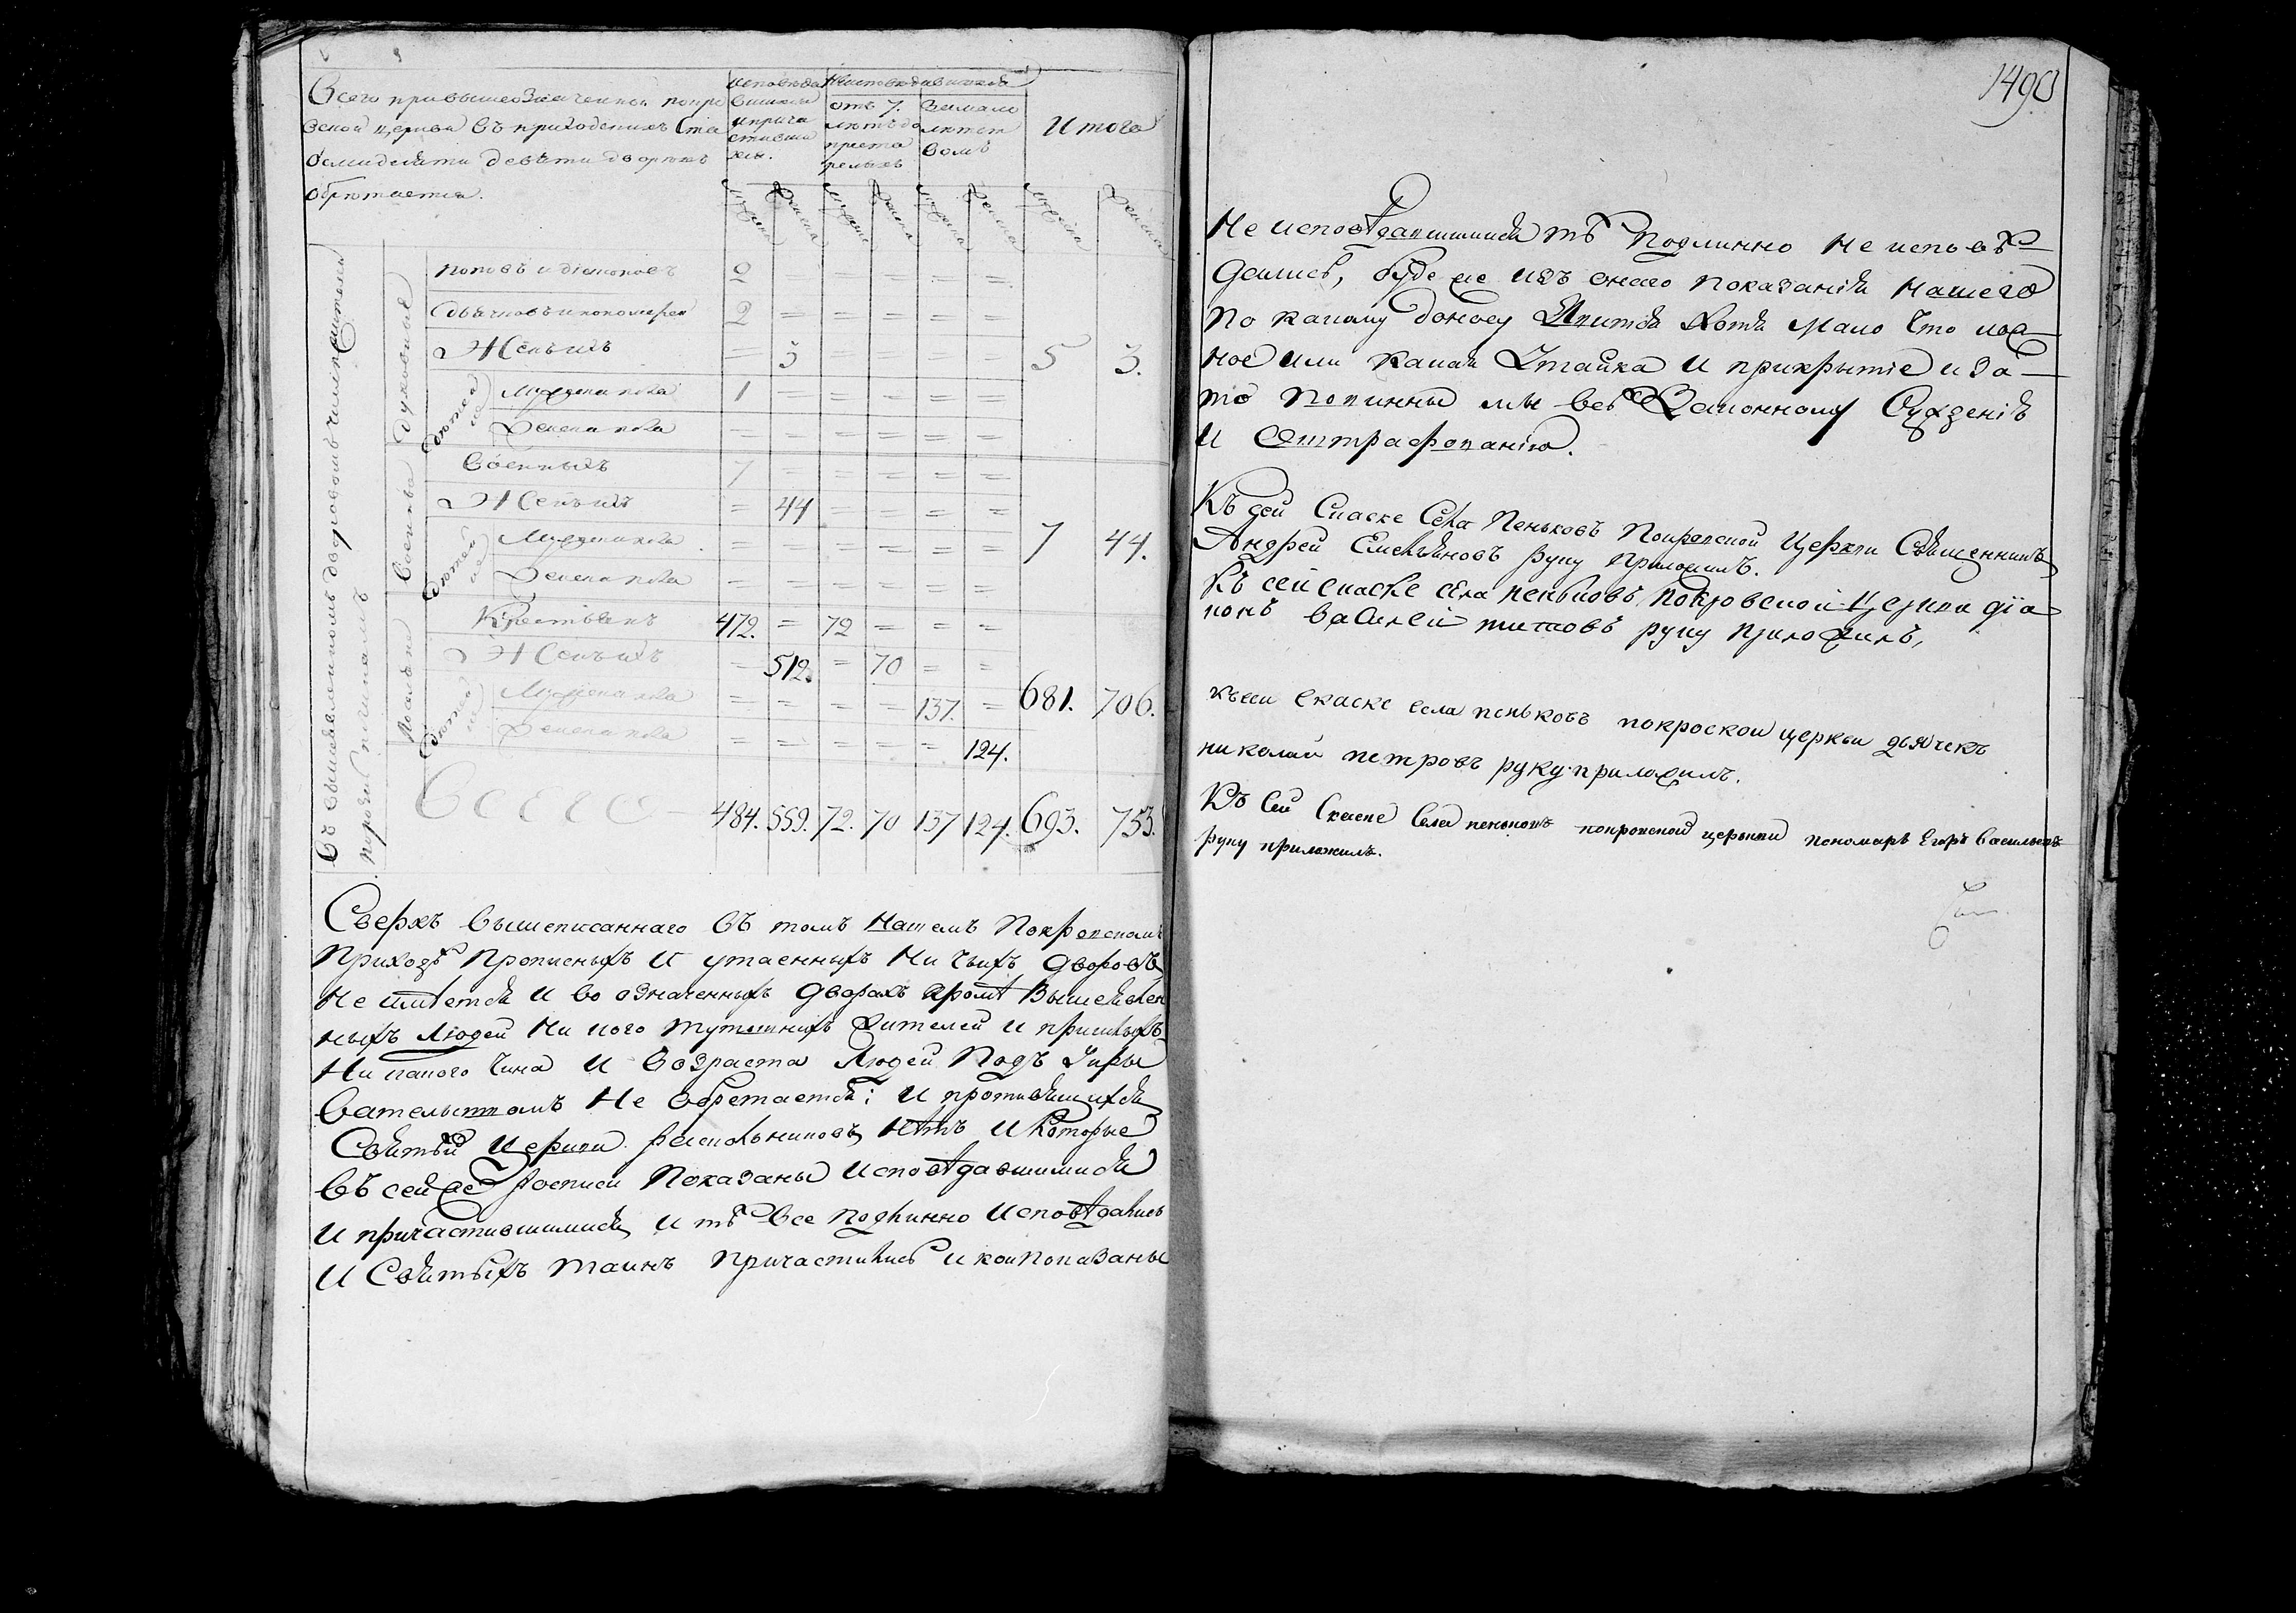 Всего при вышеозначенной покро
вской церкви въ приходскихъ ста
осмидесяти девяти дворахъ
обрѣтается.
исповѣда
вшихся
и прича
стивши
хся.
Неисповѣдавшихся
отъ 7.
лѣтъ до
преста
релыхъ
За мало
лѣтст
вомъ
Итого
мужеска
женска
мужеска
женска
мужеска
женска
мужеска
женска
духовные
поповъ и дiаконовъ 2 = = = = =
дьячковъ и пономарей 2 = = = = =
Женъ ихъ = 3 = = = = 5 3.
дѣтей
Мужеска пола 1 = = = = =
Женска пола = = = = = =
Военные
Военныхъ 7 = = = = =
Женъ ихъ = 44 = = = 7 44.
дѣтей
Мужеска пола = = = = = =
Женска пола = = = = = =
Крестьянъ 472. = 72 = = =
Женъ ихъ = 512. = 70 = =
дѣтей
Мужеска пола = = = = 137. = 681. 706.
Женска пола = = = = = 124.
Всего 484. 559. 72. 70 137 124. 693. 753.
Сверхъ вышеписаннаго въ томъ нашемъ Покровскомъ
Приходѣ Прописныхъ и утаенныхъ ни чьихъ дворовъ
не имѣется и во означенныхъ дворахъ кромѣ вышеявлен
ныхъ людей ни кого тутошнихъ жителей и пришлыхъ
ни какого чина и возраста людей Подъ укры
вательствомъ не обретается; и противящихся
Святѣй Церкви раскольниковъ нѣтъ и которые
въ сей же росписи Показаны исповѣдавшимися
и причастившимися, и тѣ все подлинно исповѣдались
и Святыхъ таинъ причастились и кои показаны
1490
Не исповѣдавшимися тѣ Подлинно не исповѣ
дались, буде же изъ онаго показанiя нашего
по какому доносу явится хотя мало что лож
ное или какая утайка и прикрытiе и за
то повинны мы все законному сужденiю
и оштрафованiю.
Къ сей скаске Села Пеньковъ Покровской Церкви Священникъ
Андрей Емельяновъ руку приложилъ.
Къ сей скаске села пеньковъ покровской церкви дiа
конъ василей титовъ руку приложилъ,
къ сеи скаске села пеньковъ покроской церкви дьячекъ
николай петровъ руку приложилъ.
Къ сей скаске села пеньковъ покровской церькви пономарь Егоръ Васильевъ
руку приложилъ.